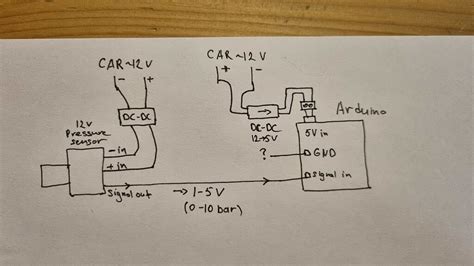 CAR ~12V
- +
DC-DC
12V
Pressure
sensor
- in
+ in
Signal out
→ 1-5V
(0-10 bar)
CAR ~12V
+ -
DC-DC
12→5V
Arduino
5V in
?
GND
Signal in